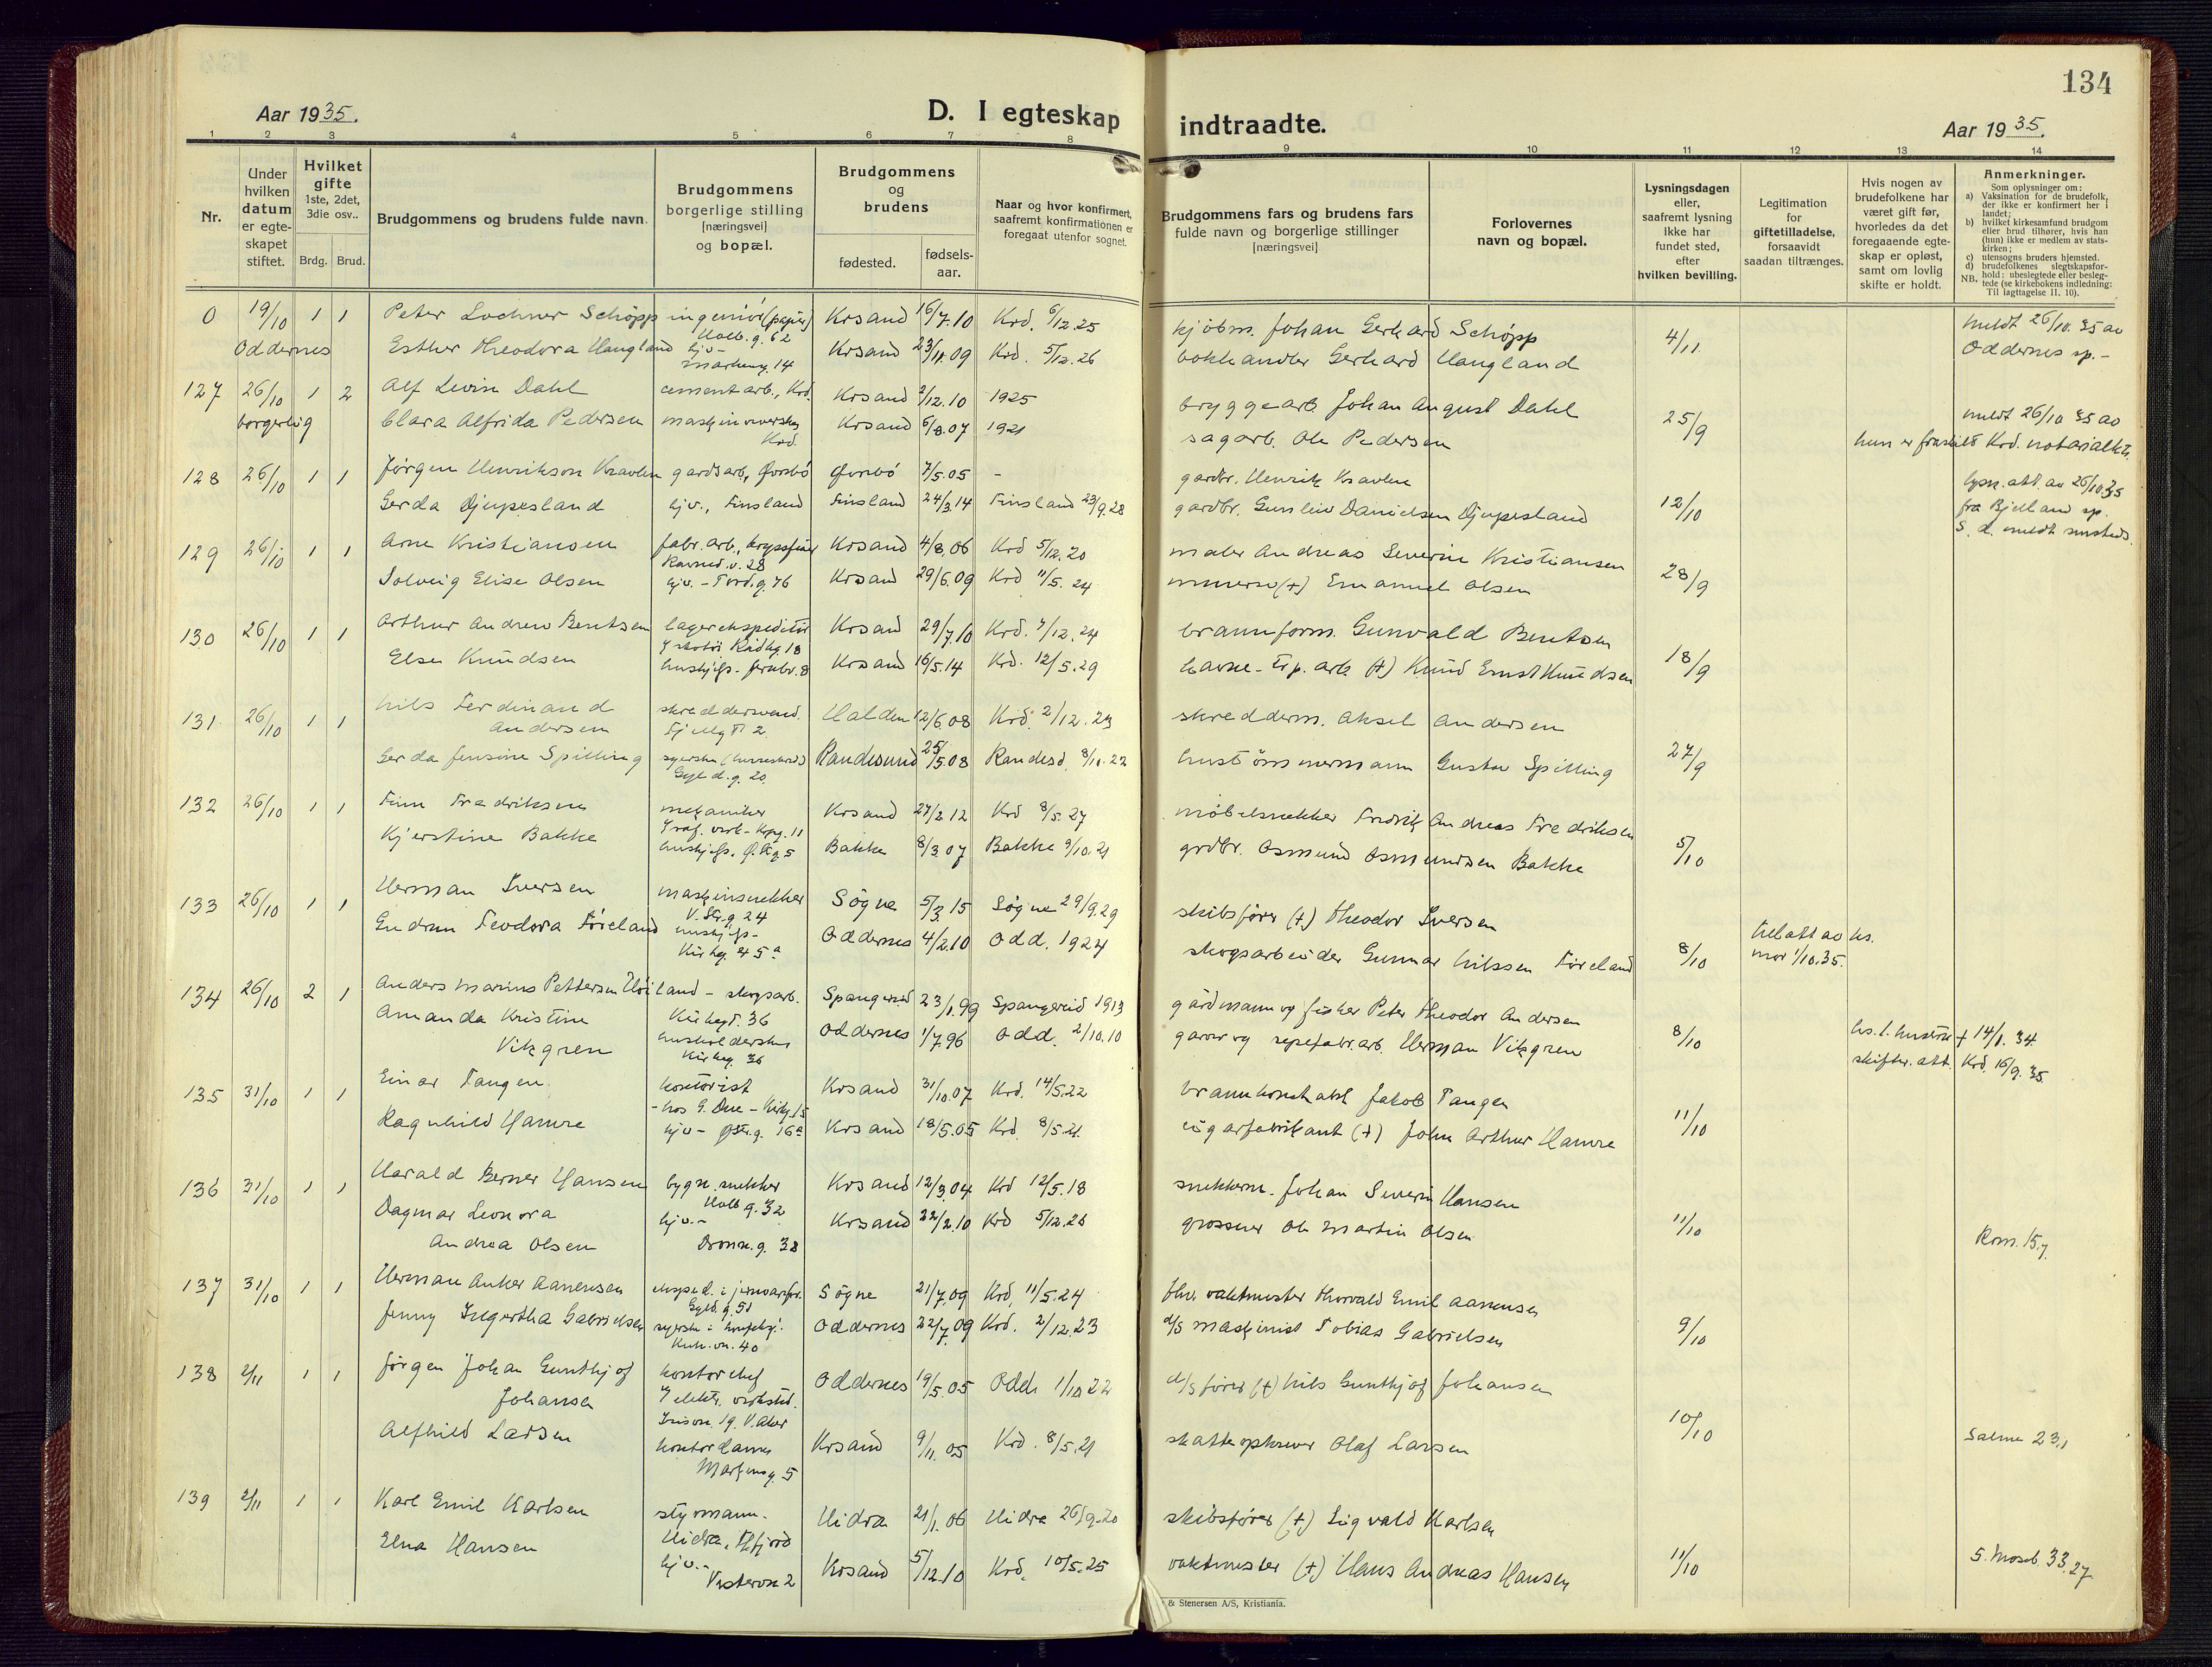 134
Aar 1935.
D. I egteskap indtraadte.
Aar 1935.
1 2 3 4 5 6 7 8 9 10 11 12 13 14
Nr.
Under hvilken datum er egte-skapet stiftet.
Hvilket gifte 1ste, 2det, 3die osv..
Brdg. Brud.
Brudgommens og brudens fulde navn.
Brudgommens borgerlige stilling [næringsvei] og bopæl.
Brudgommens og brudens
fødested.
fødsels-aar.
Naar og hvor konfirmert, saafremt konfirmationen er foregaat utenfor sognet.
Brudgommens fars og brudens fars fulde navn og borgerlige stillinger [næringsvei]
Forlovernes navn og bopæl.
Lysningsdagen eller, saafremt lysning ikke har fundet sted, efter hvilken bevilling.
Legitimation for giftetilladelse, forsaavidt saadan tiltrænges.
Hvis nogen av brudefolkene har været gift før, hvorledes da det foregaaende egte-skap er opløst, samt om lovlig skifte er holdt.
Anmerkninger.
Som oplysninger om:
a) Vaksination for de brudefolk, der ikke er konfirmert her i landet;
b) hvilket kirkesamfund brudgom eller brud tilhører, hvis han (hun) ikke er medlem av stats-kirken;
c) utensogns bruders hjemsted.
d) brudefolkenes slegtskapsfor-hold: ubeslegtede eller besleg-tede (se kirkebokens indledning: Til iagttagelse II. 10).
NB.
0 19/10 1 1 Peter Lochner Schøpp ingeniör (papir) Holb.g. 62 Krsand 16/7.10 Krd. 6/12.25 kjöbm. Johan Gerhard Schøpp 4/11 meldt 26/10.35 av
Oddernes Esther Theodora Haugland hjv- Markensg. 14 Krsand 23/11.09 Krd. 5/12.26 bokhandler Gerhard Haugland Oddernes sp.-
127 26/10 1 2 Alf Levin Dahl cementarb., Krd. Krsand 2/12.10 1925 bryggearb. Johan August Dahl 25/9 meldt 26/10 35 av
borgerlig Clara Alfrida Pedersen Krd. Krsand 6/8.07 1921 sagarb. Ole Pedersen hun er fraskilt Krd. notarialktr.
128 26/10 1 1 Jørgen Henrikson Kravlen gardsarb., Øvrebö Øvrebö 7/5.05 - gardbr. Henrik Kravlen 12/10 lysn.att. av 26/10.35
Gerda Djupesland hjv., Finsland Finsland 24/3.14 Finsland 23/9.28 gardbr. Gunleiv Danielsen Djupesland fra Bjelland sp.
S. d. meldt
129 26/10 1 1 Arne Kristiansen fabr.arb., Ravned.v. 28 Krsand 4/8.06 Krd 5/12.20 maler Andreas Severin Kristiansen 28/9
Solveig Elise Olsen hjv. - Tord.g. 76 Krsand 29/6.09 Krd 11/5.24 murer (+) Emanuel Olsen
130 26/10 1 1 Arthur Andrew Bentsen lagerekspeditör Krsand 29/7.10 Krd. 7/12.24 brannform. Gunvald Bentsen 18/9
Else Knudsen hushjelp- 8 Krsand 16/5.14 Krd. 12/5.29 havne- arb. (+) Knud Ernst Knudsen
131 26/10 1 1 Nils Ferdinand Andersen skreddersvend. Fjellgt. 2. Halden 12/6.08 Krd. 2/12.23 skredderm. Aksel Andersen 27/9
Gerda Jensine Spilling syerske Gyld.g. 20. Randesund 25/5.08 Randesd. 8/10.22 hustömmermann Gustav Spilling
132 26/10 1 1 Finn Fredriksen mekaniker 11 Krsand 27/2.12 Krd 8/5.27 möbelsnekker Fredrik Andreas Fredriksen 5/10
Kjerstine Bakke hushjelp. 5 Bakke 8/3.07 Bakke 9/10.21 grdbr. Osmund Osmundsen Bakke
133 26/10 1 1 Herman Iversen maskinsnekker V.Str.g 24 Søgne 5/3.15 Søgne 29/9.29 skibsfører (+) Theodor Iversen 8/10 till.att av hs. mor 1/10.35.
Gudrun Teodora Føreland hushjelp- Kirkeg. 45a Oddernes 4/2.10 Odd. 1924 skogsarbeider Gunnar Nilssen Føreland
134 26/10 2 1 Anders Marius Pettersen Høiland - skogsarb. Kirkegt. 36 Spangereid 23/1.99 Spangereid 1913 gårdmann og fisker Peter Theodor Andersen 8/10 hs. 1. hustru + 14/1.34.
Amanda Kristine Vikgren husholderske Kirkeg. 36 Oddernes 1/7.96 Odd. 2/10.10 garver og repefabr.arb. Herman Vikgren skifter.att. Krd. 16/9.35.
135 31/10 1 1 Einar Tangen kontorist - hos G. Due - Kirkg. 15 Krsand 31/10.07 Krd. 14/5.22 brannkonstabel Jakob Tangen 11/10
Ragnhild Hamre hjv - Østr.g. 16a Krsand 18/5.05 Krd. 8/5.21. cigarfabrikant (+) John Arthur Hamre
136 31/10 1 1 Harald Berner Hansen bygn.snekker Holb.g. 32 Krsand 12/3.04 Krd 12/5.18 snekkerm. Johan Severin Hansen 11/10
Dagmar Leonora Andrea Olsen hjv.- Dronn.g. 38 Krsand 22/2.10 Krd 5/12.26 grosserer Ole Martin Olsen Rom. 15.7
137 31/10 1 1 Herman Anker Aanensen eksped. i Gyld.g. 51 Søgne 21/7.09 Krd. 11/5.24 fhv. vaktmester Thorvald Emil Aanensen 9/10
Jenny Ingertha Gabrielsen syerske i 40 Oddernes 22/7.09 Krd. 2/12.23 d/s maskinist Tobias Gabrielsen
138 2/11 1 1 Jørgen Johan Gunthjof Johansen kontorchef 19 V.Aker Oddernes 19/5.05 Odd. 1/10 22 d/s fører (+) Nils Gunthjof Johansen 10/10
Alfhild Larsen kontordame Markensg. 5 Krsand 9/11.05 Krd. 8/5.21 skatteopkrever Olaf Larsen Salme 23,1
139 2/11 1 1 Karl Emil Karlsen styrmann. Hidra, Flfjord Hidra 21/1.06 Hidra 26/9.20 skibsfører (+) Sigvald Karlsen 11/10
Elna Hansen hjv.- Vestervn 2 Krsand 5/12.10 Krd. 10/5.25 vaktmester (+) Hans Andreas Hansen 5. Moseb. 33.27
& Stenersen A/S, Kristiania.